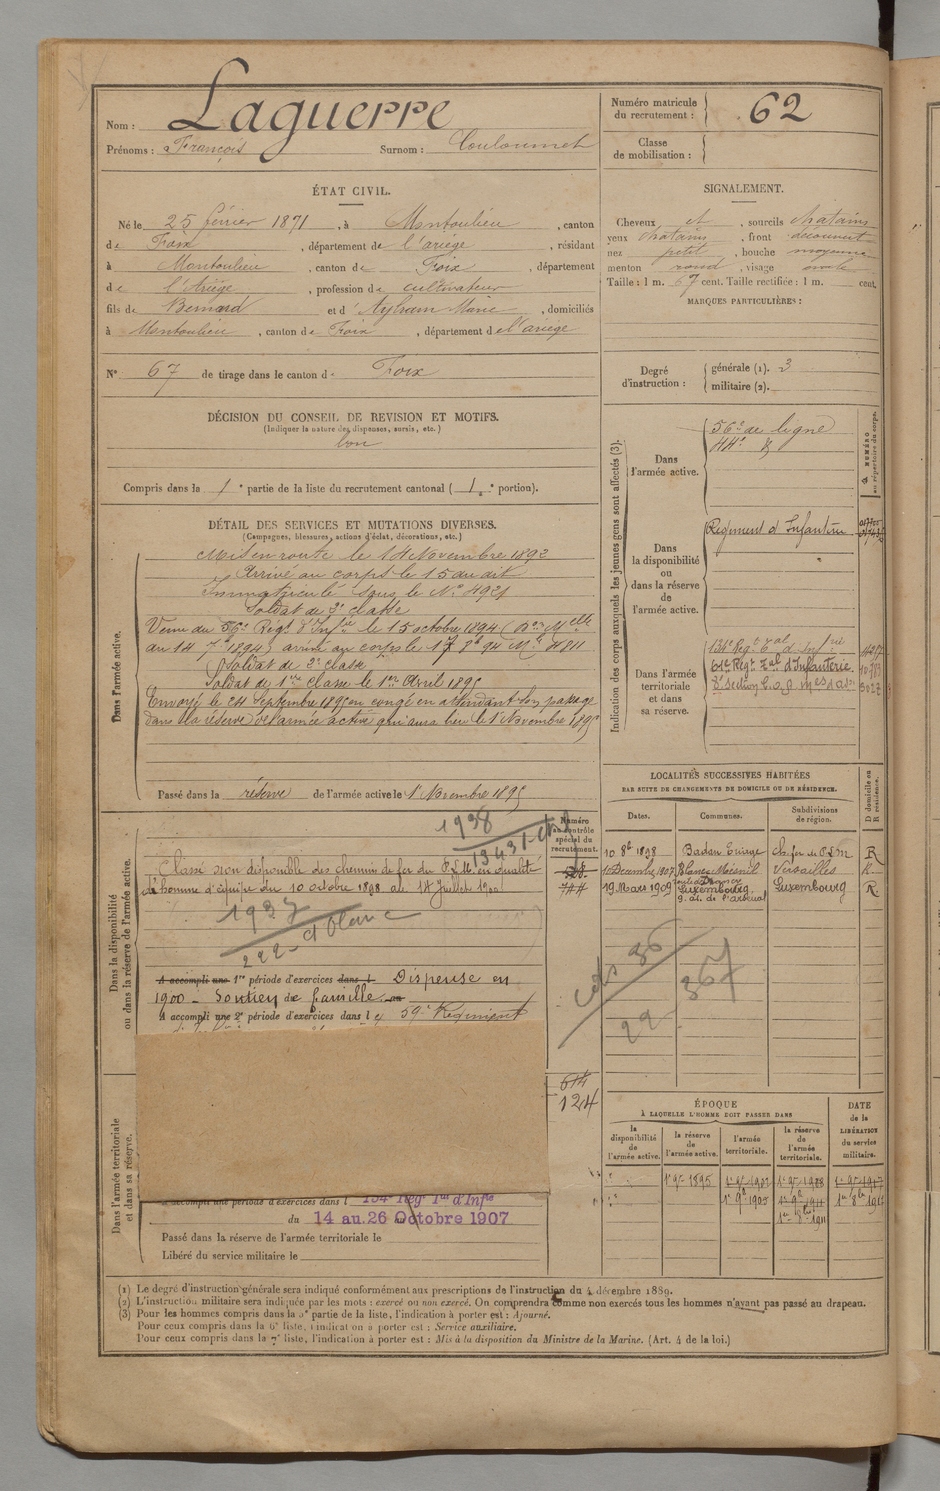 Nom : Laguerre
Prénoms : François Surnom : Couloumet
ÉTAT CIVIL.
Né le 25 février 1871, à Montoulieu, canton
de Foix, département de l'ariége, résidant
à Montoulieu, canton de Foix, département
de l'Ariége, profession de cultivateur
fils de Bernard et d'Aylram Marie, domiciliés
à Montoulieu, canton de Foix, département de l'ariége
N° 67 de tirage dans le canton d Foix
DÉCISION DU CONSEIL DE REVISION ET MOTIFS.
(Indiquer la nature des dispenses, sursis, etc.)
bon
Compris dans la 1e partie de la liste du recrutement cantonal (1e portion).
DÉTAIL DES SERVICES ET MUTATIONS DIVERSES.
(Campagnes, blessures, actions d'éclat, décorations, etc.)
Dans l'armée active.
Mis en route le 14 Novembre 1892
Arrivé au corps le 15 du dit
Immatriculé sous le N° 4921
Soldat de 2e classe
Venu du 56e Régt d'Infie le 15 octobre 1894 (Don Melle
du 14 7b 1894) arrivé au corps le 17 8b 94 Mle 4811
Soldat de 2e classe
Soldat de 1re classe le 1er Avril 1895
Envoyé le 24 Septembre 1895 en congé en attendant son passage
dans la réserve de l'armée active qui aura lieu le 1 Novembre 1895
Passé dans la réserve de l'armée active le 1 Novembre 1895
Dans la disponibilité
ou dans la réserve de l'armée active.
1938
Numéro
au contrôle
spécial du
recrutement.
Classé non disponible des chemins de fer du P.L.M. en qualité
d'homme d'équipe du 10 octobre 1898 au 18 Juillet 1900
744
1937
222
A accompli une 1re période d'exercices dans l Dispense en
1900 - Soutien de famille
A accompli une 2e période d'exercices dans le 59e Régiment
Dans l'armée territoriale
et dans sa réserve.
614
124
A accompli une période d'exercices dans l 134e Régt Tal d'Infie
du 14 au 26 Octobre 1907
Passé dans la réserve de l'armée territoriale le
Libéré du service militaire le
Numéro matricule
du recrutement : 62
Classe
de mobilisation :
SIGNALEMENT.
Cheveux et, sourcils chatains
yeux chatains, front découvert
nez petit, bouche moyenne
menton rond, visage ovale
Taille : 1 m. 67 cent. Taille rectifiée : 1 m. cent.
MARQUES PARTICULIÈRES :
Degré
d'instruction :
générale (1). 3
militaire (2).
Indication des corps auxquels les jeunes gens sont affectés (3).
NUMÉRO
au répertoire du corps.
Dans
l'armée active.
56e de ligne
44e
Dans
la disponibilité
ou
dans la réserve
de
l'armée active.
Régiment d'Infanterie
Dans l'armée
territoriale
et dans
sa réserve.
134e Regt Tal d'Infrie
61e Régt Tal d'Infanterie
LOCALITÉS SUCCESSIVES HABITÉES
PAR SUITE DE CHANGEMENTS DE DOMICILE OU DE RÉSIDENCE.
D domicile ou
R résidence.
Dates. Communes. Subdivisions
de région.
10 8b 1898 Badan Ch. fer du P.L.M R
10 Decembre 1907 Blanc Mesnil Versailles R
19 Mars 1909 Luxembourg Luxembourg R
9. av. de l'arsenal
367
ÉPOQUE
À LAQUELLE L'HOMME DOIT PASSER DANS
la
disponibilité
de
l'armée active.
la réserve
de
l'armée active.
l'armée
territoriale.
la réserve
de
l'armée
territoriale.
DATE
de la
LIBÉRATION
du service
militaire.
(1) Le degré d'instruction générale sera indiqué conformément aux prescriptions de l'instruction du 4 décembre 1889.
(2) L'instruction militaire sera indiquée par les mots : exercé ou non exercé. On comprendra comme non exercés tous les hommes n'ayant pas passé au drapeau.
(3) Pour les hommes compris dans la 5e partie de la liste, l'indication à porter est : Ajourné.
Pour ceux compris dans la 6e liste, l'indication à porter est : Service auxiliaire.
Pour ceux compris dans la 7e liste, l'indication à porter est : Mis à la disposition du Ministre de la Marine. (Art. 4 de la loi.)